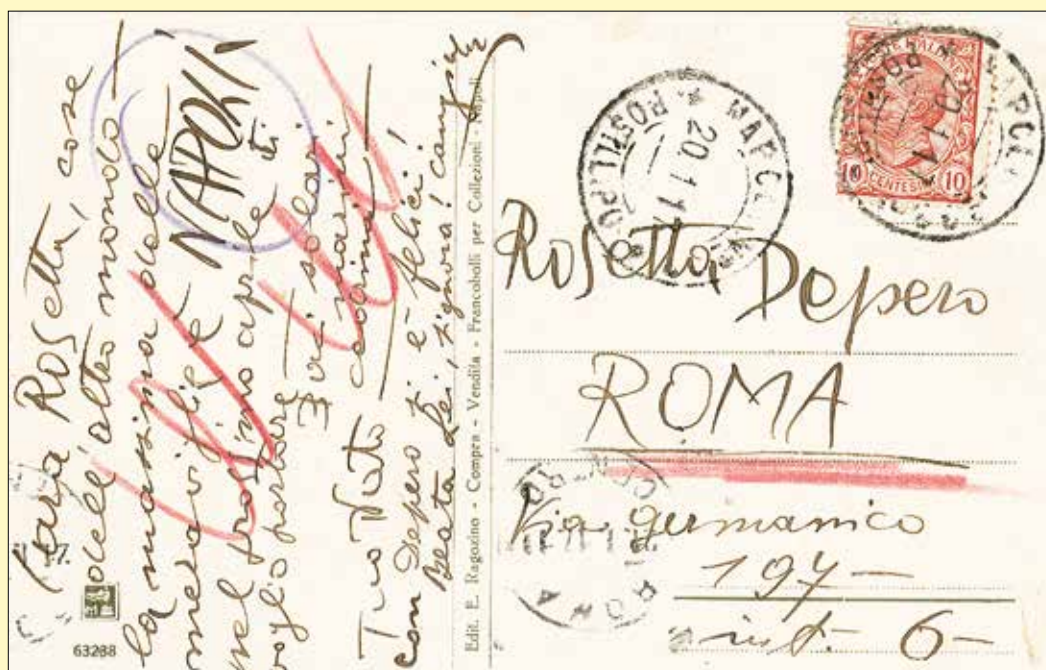 Cara Rosetta, cose
dell'altro mondo —
la massima delle
meraviglie è NAPOLI
nel prossimo aprile ti
voglio portare
3 voti solari
marini
Tuo Fortunato
con Depero è felice!
Beata Lei, signora!
Edit. E. Ragozino - Compra - Vendita - Francobolli per Collezioni - Napoli
63288
17.
NAPOLI
20.1.17
POSILIPO
10 CENTESIMI 10
Rosetta Depero
ROMA
Via germanico
197 —
int. 6 —
ROMA